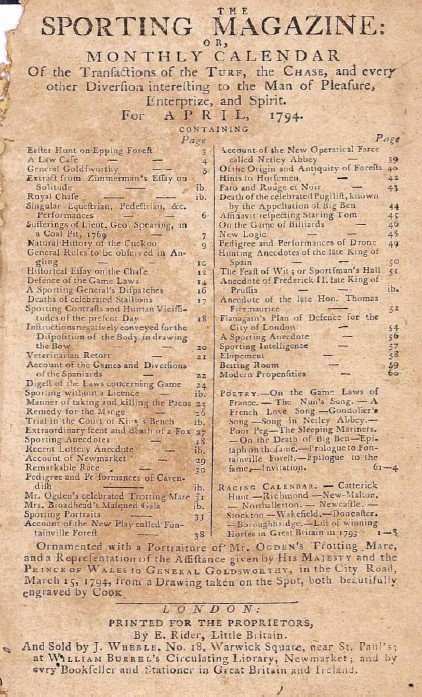 THE
SPORTING MAGAZINE:
OR,
MONTHLY CALENDAR
Of the Tranſactions of the TURF, the CHASE, and every
other Diverſion intereſting to the Man of Pleaſure,
Enterprize, and Spirit.
For APRIL, 1794.
CONTAINING
Page
Eaſter Hunt on Epping Foreſt 3
A Law Caſe — 4
General Goldſworthy — 5
Extract from Zimmerman's Eſſay on
Solitude — ib.
Royal Chaſe — ib.
Singular Equeſtrian, Pedeſtrian, &c.
Performances — 6
Sufferings of Lieut. Geo. Spearing, in
a Coal Pit, 1769 — 7
Natural Hiſtory of the Cuckoo 9
General Rules to be obſerved in An-
gling — 10
Hiſtorical Eſſay on the Chaſe 12
Defence of the Game Laws 14
A Sporting General's Diſpatches 16
Deaths of celebrated Stallions 17
Sporting Contraſts and Human Viciſſi-
tudes of the preſent Day 18
Inſtructions negatively conveyed for the
Diſpoſition of the Body in drawing
the Bow — 20
Veterinarian Retort — 21
Account of the Games and Diverſions
of the Spaniards — 22
Digeſt of the Laws concerning Game 24
Sporting without a Licence ib.
Manner of taking and killing the Pacos 25
Remedy for the Mange — 26
Trial in the Court of King's Bench ib.
Extraordinary ſcent and death of a Fox 27
Sporting Anecdotes — 28
Recent Lottery Anecdote — ib.
Account of Newmarket — 29
Remarkable Race — 30
Pedigree and Performances of Caven-
diſh — ib.
Mr. Ogden's celebrated Trotting Mare 31
Mrs. Broadhead's Maſqued Gala ib.
Sporting Portraits — 33
Account of the New Play called Fon-
tainville Foreſt — 38
Page
Account of the New Operatical Farce
called Netley Abbey — 39
Of the Origin and Antiquity of Foreſts 40
Hints to Horſemen — 42
Faro and Rouge et Noir — 43
Death of the celebrated Pugiliſt, known
by the Appellation of Big Ben 44
Affidavit reſpecting Staring Tom 45
On the Game of Billiards — 46
New Logic — 48
Pedigree and Performances of Drone 49
Hunting Anecdotes of the late King of
Spain — 50
The Feaſt of Wit; or Sportſman's Hall 51
Anecdote of Frederick II. late King of
Pruſſia — ib.
Anecdote of the late Hon. Thomas
Fitzmaurice — 52
Flanagan's Plan of Defence for the
City of London — 54
A Sporting Anecdote — 56
Sporting Intelligence — 57
Elopement — 58
Betting Room — 59
Modern Propenſities — 60
POETRY.—On the Game Laws of
France.—The Nun's Song.—A
French Love Song—Gondolier's
Song—Song in Netley Abbey.—
Poor Peg—The Sleeping Mariners.
—On the Death of Big Ben—Epi-
taph on the ſame.—Prologue to Fon-
tainville Foreſt.—Epilogue to the
ſame.—Invitation. 61—4
RACING CALENDAR.—Catterick
Hunt.—Richmond—New-Malton.
—Northallerton.—Newcaſtle.—
Stockton—Wakefield,—Doncaſter.
—Boroughbridge.—Liſt of winning
Horſes in Great Britain in 1793 1—8
Ornamented with a Portraiture of Mr. OGDEN'S Trotting Mare,
and a Repreſentation of the Aſſiſtance given by HIS MAJESTY and the
PRINCE OF WALES to GENERAL GOLDSWORTHY, in the City Road,
March 15, 1794, from a Drawing taken on the Spot, both beautifully
engraved by COOK.
LONDON:
PRINTED FOR THE PROPRIETORS,
By E. Rider, Little Britain.
And Sold by J. WHEBLE, No. 18, Warwick Square, near St. Paul's;
at WILLIAM BURREL'S Circulating Library, Newmarket; and by
every Bookſeller and Stationer in Great Britain and Ireland.